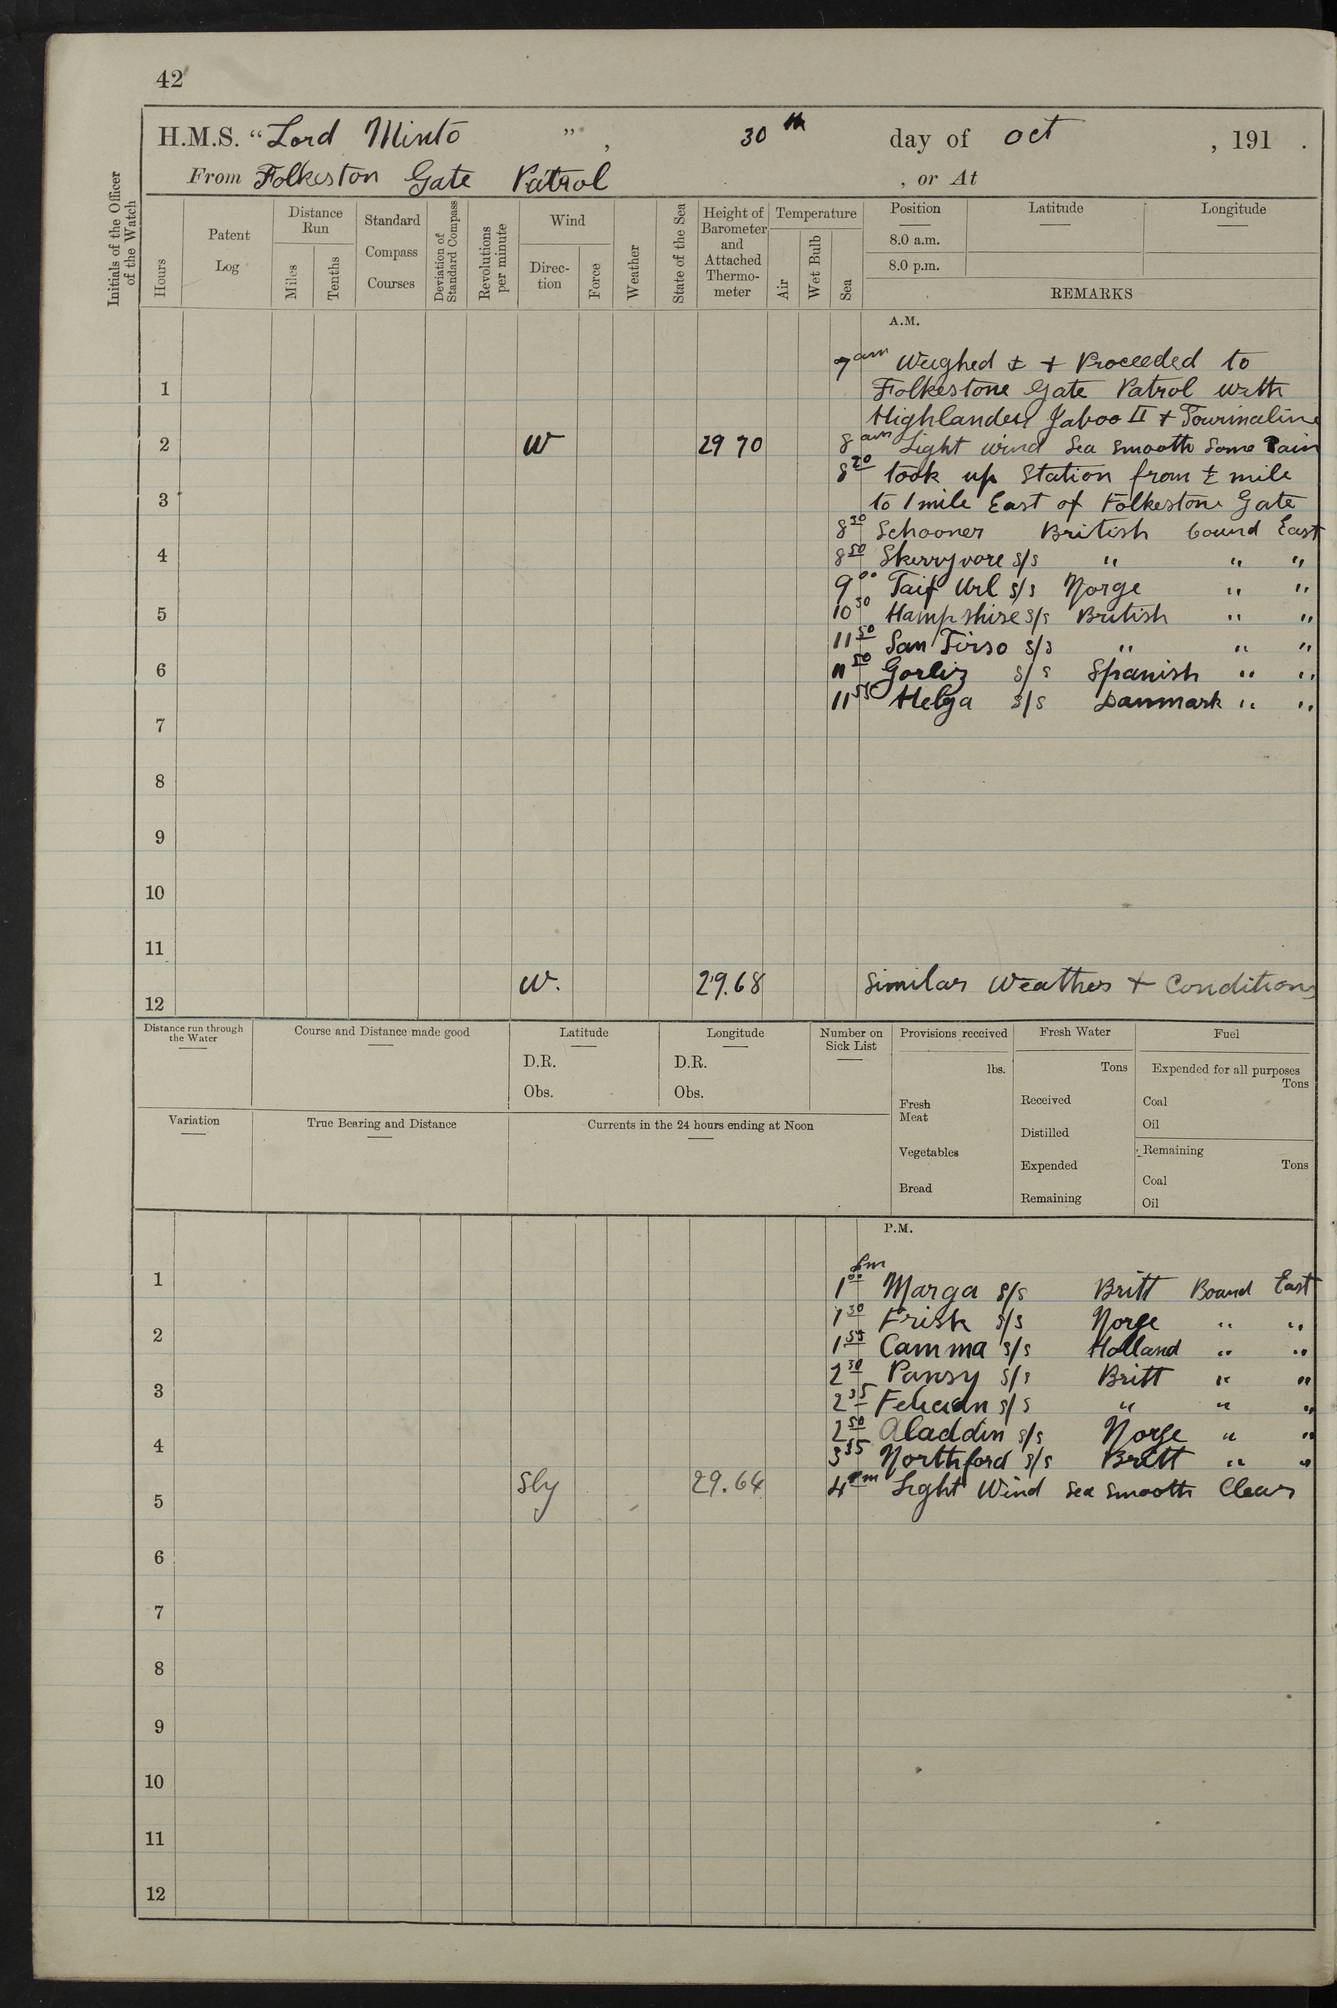 42
H.M.S. “Lord Minto ”, 30th day of Oct , 191 .
From Folkeston Gate Patrol , or At
Initials of the Officer of the Watch
Hours
Patent Log
Distance Run
Miles
Tenths
Standard Compass Courses
Deviation of Standard Compass
Revolutions per minute
Wind
Direction
Force
Weather
State of the Sea
Height of Barometer and Attached Thermometer
Temperature
Air
Wet Bulb
Sea
Position
8.0 a.m.
8.0 p.m.
Latitude
Longitude
REMARKS
A.M.
7am Weighed ± + Proceeded to
1 Folkestone Gate Patrol with
Highlander, Yaboo II + Tourmaline
2 W 29 70 8am Light wind Sea smooth Some Rain
8 20 took up Station from ½ mile
3 to 1 mile East of Folkestone Gate
8 30 Schooner British bound East
4 8 50 Skerryvore s/s " " "
9 00 Taif s/s Norge " "
5 10 30 Hampshire s/s British " "
11 50 San Tirso s/s " " "
6 11 50 Gorliz s/s Spanish " "
11 55 Helga s/s Danmark " "
7
8
9
10
11
12 W. 29.68 Similar Weather + Conditions
Distance run through the Water
Course and Distance made good
Latitude
D.R.
Obs.
Longitude
D.R.
Obs.
Number on Sick List
Provisions received
lbs.
Fresh Meat
Vegetables
Bread
Fresh Water
Tons
Received
Distilled
Expended
Remaining
Fuel
Expended for all purposes
Tons
Coal
Oil
Remaining
Tons
Coal
Oil
Variation
True Bearing and Distance
Currents in the 24 hours ending at Noon
P.M.
pm
1 1 00 Marga s/s Britt Bound East
1 30 Frisk s/s Norge " "
2 1 55 Camma s/s Holland " "
2 30 Pansy s/s Britt " "
3 2 35 Felician s/s " " "
2 50 Aladdin s/s Norge " "
4 3 35 Northford s/s Britt " "
Sly 29.64 4pm Light Wind Sea Smooth Clear
5
6
7
8
9
10
11
12